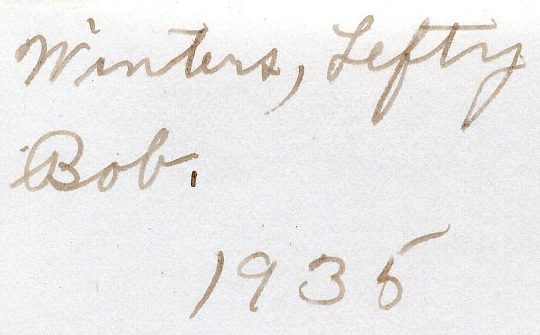 Winters, Lefty
Bob.
1935